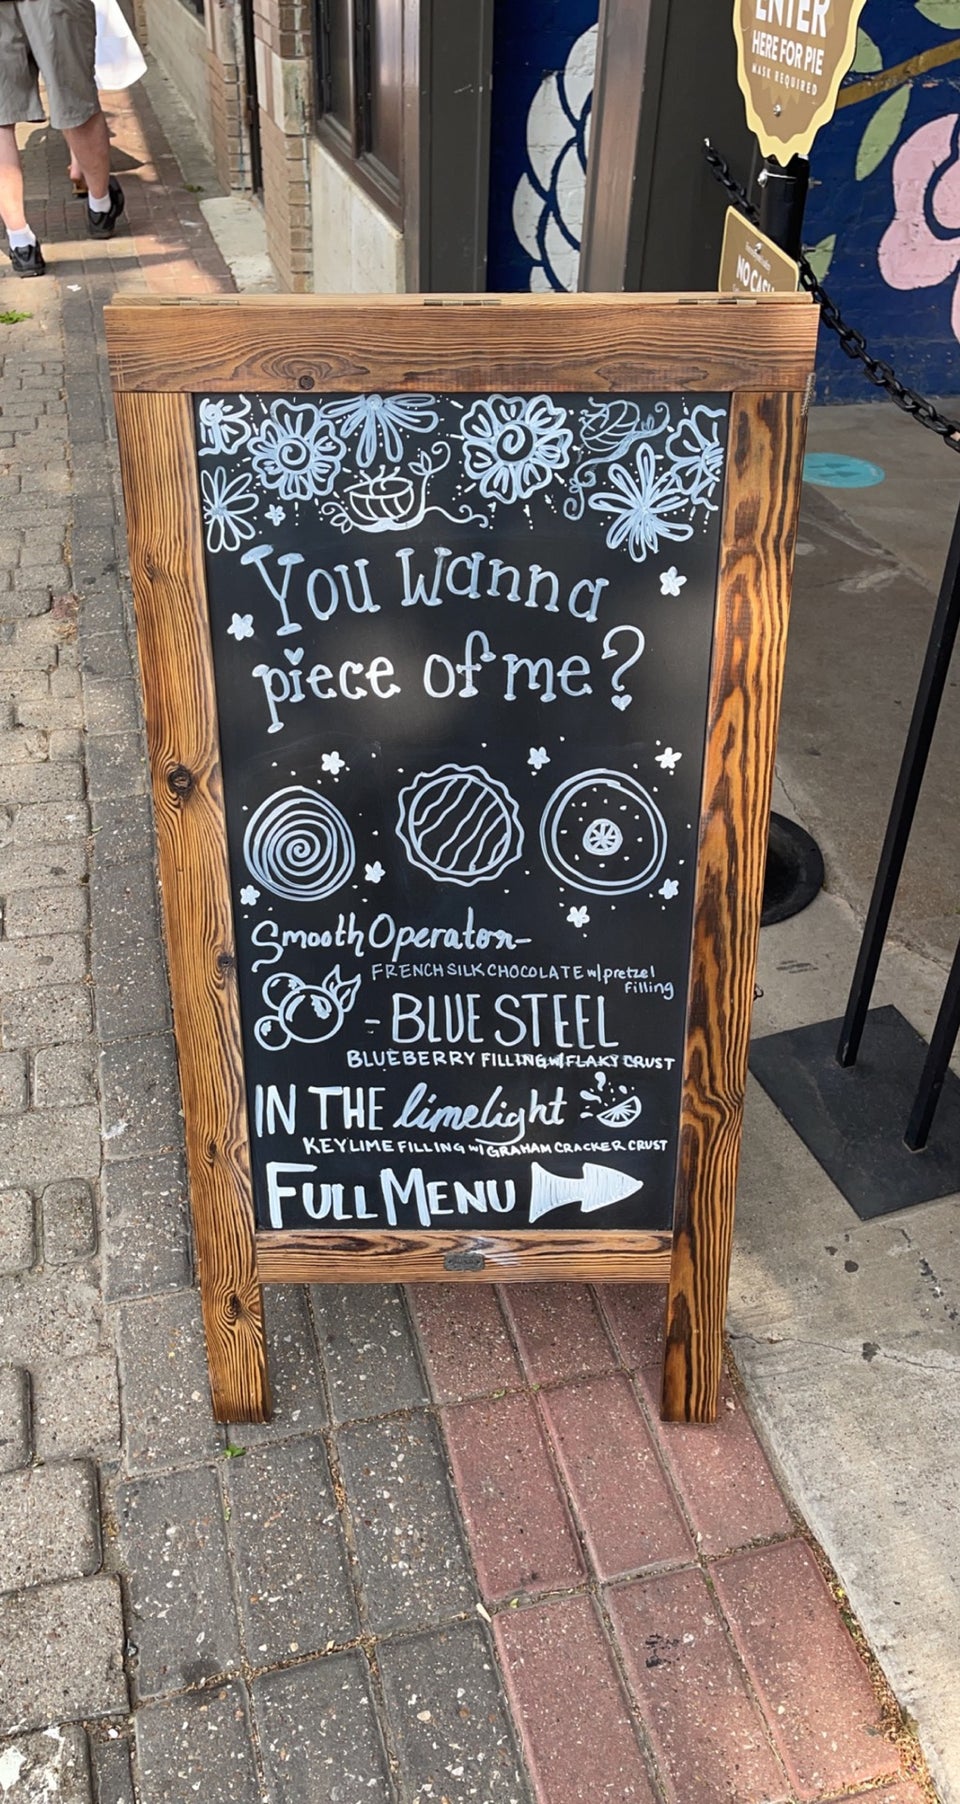 ENTER
HERE FOR PIE
MASK REQUIRED
NO CASH
You wanna
piece of me?
Smooth Operator-
FRENCH SILK CHOCOLATE w/ pretzel
filling
- BLUE STEEL
BLUEBERRY FILLING w/ FLAKY CRUST
IN THE limelight
KEY LIME FILLING w/ GRAHAM CRACKER CRUST
FULL MENU